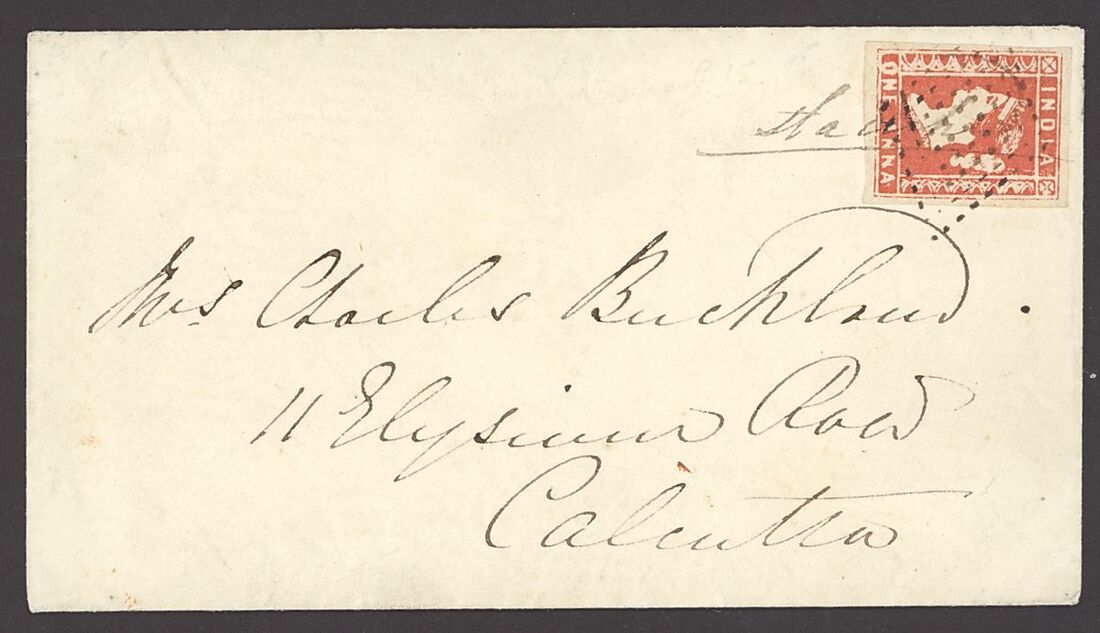 INDIA
ONE ANNA
Mrs Charles Buckland.
11 Elysium Road
Calcutta